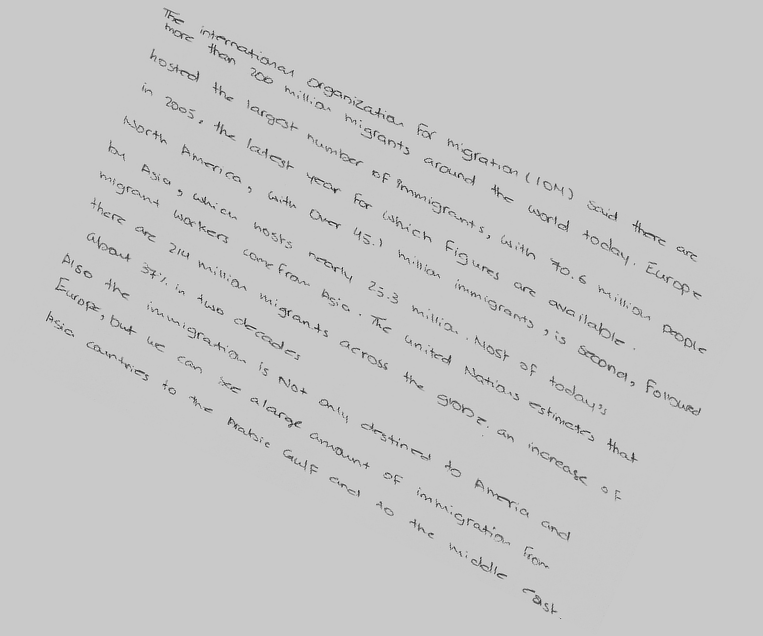 The international organization for migration (IOM) said there are
more than 200 million migrants around the world today. Europe
hosted the largest number of immigrants, with 70.6 million people
in 2005, the latest year for which figures are available.
North America, with over 45.1 million immigrants, is second, followed
by Asia, which hosts nearly 25.3 million. Most of today's
migrant workers come from Asia. The united Nations estimates that
there are 214 million migrants across the globe, an increase of
about 37% in two decades
Also the immigration is Not only destined to Ameria and
Europe, but we can see a large amount of immigration from
Asia countries to the Arabic Gulf and to the middle east.